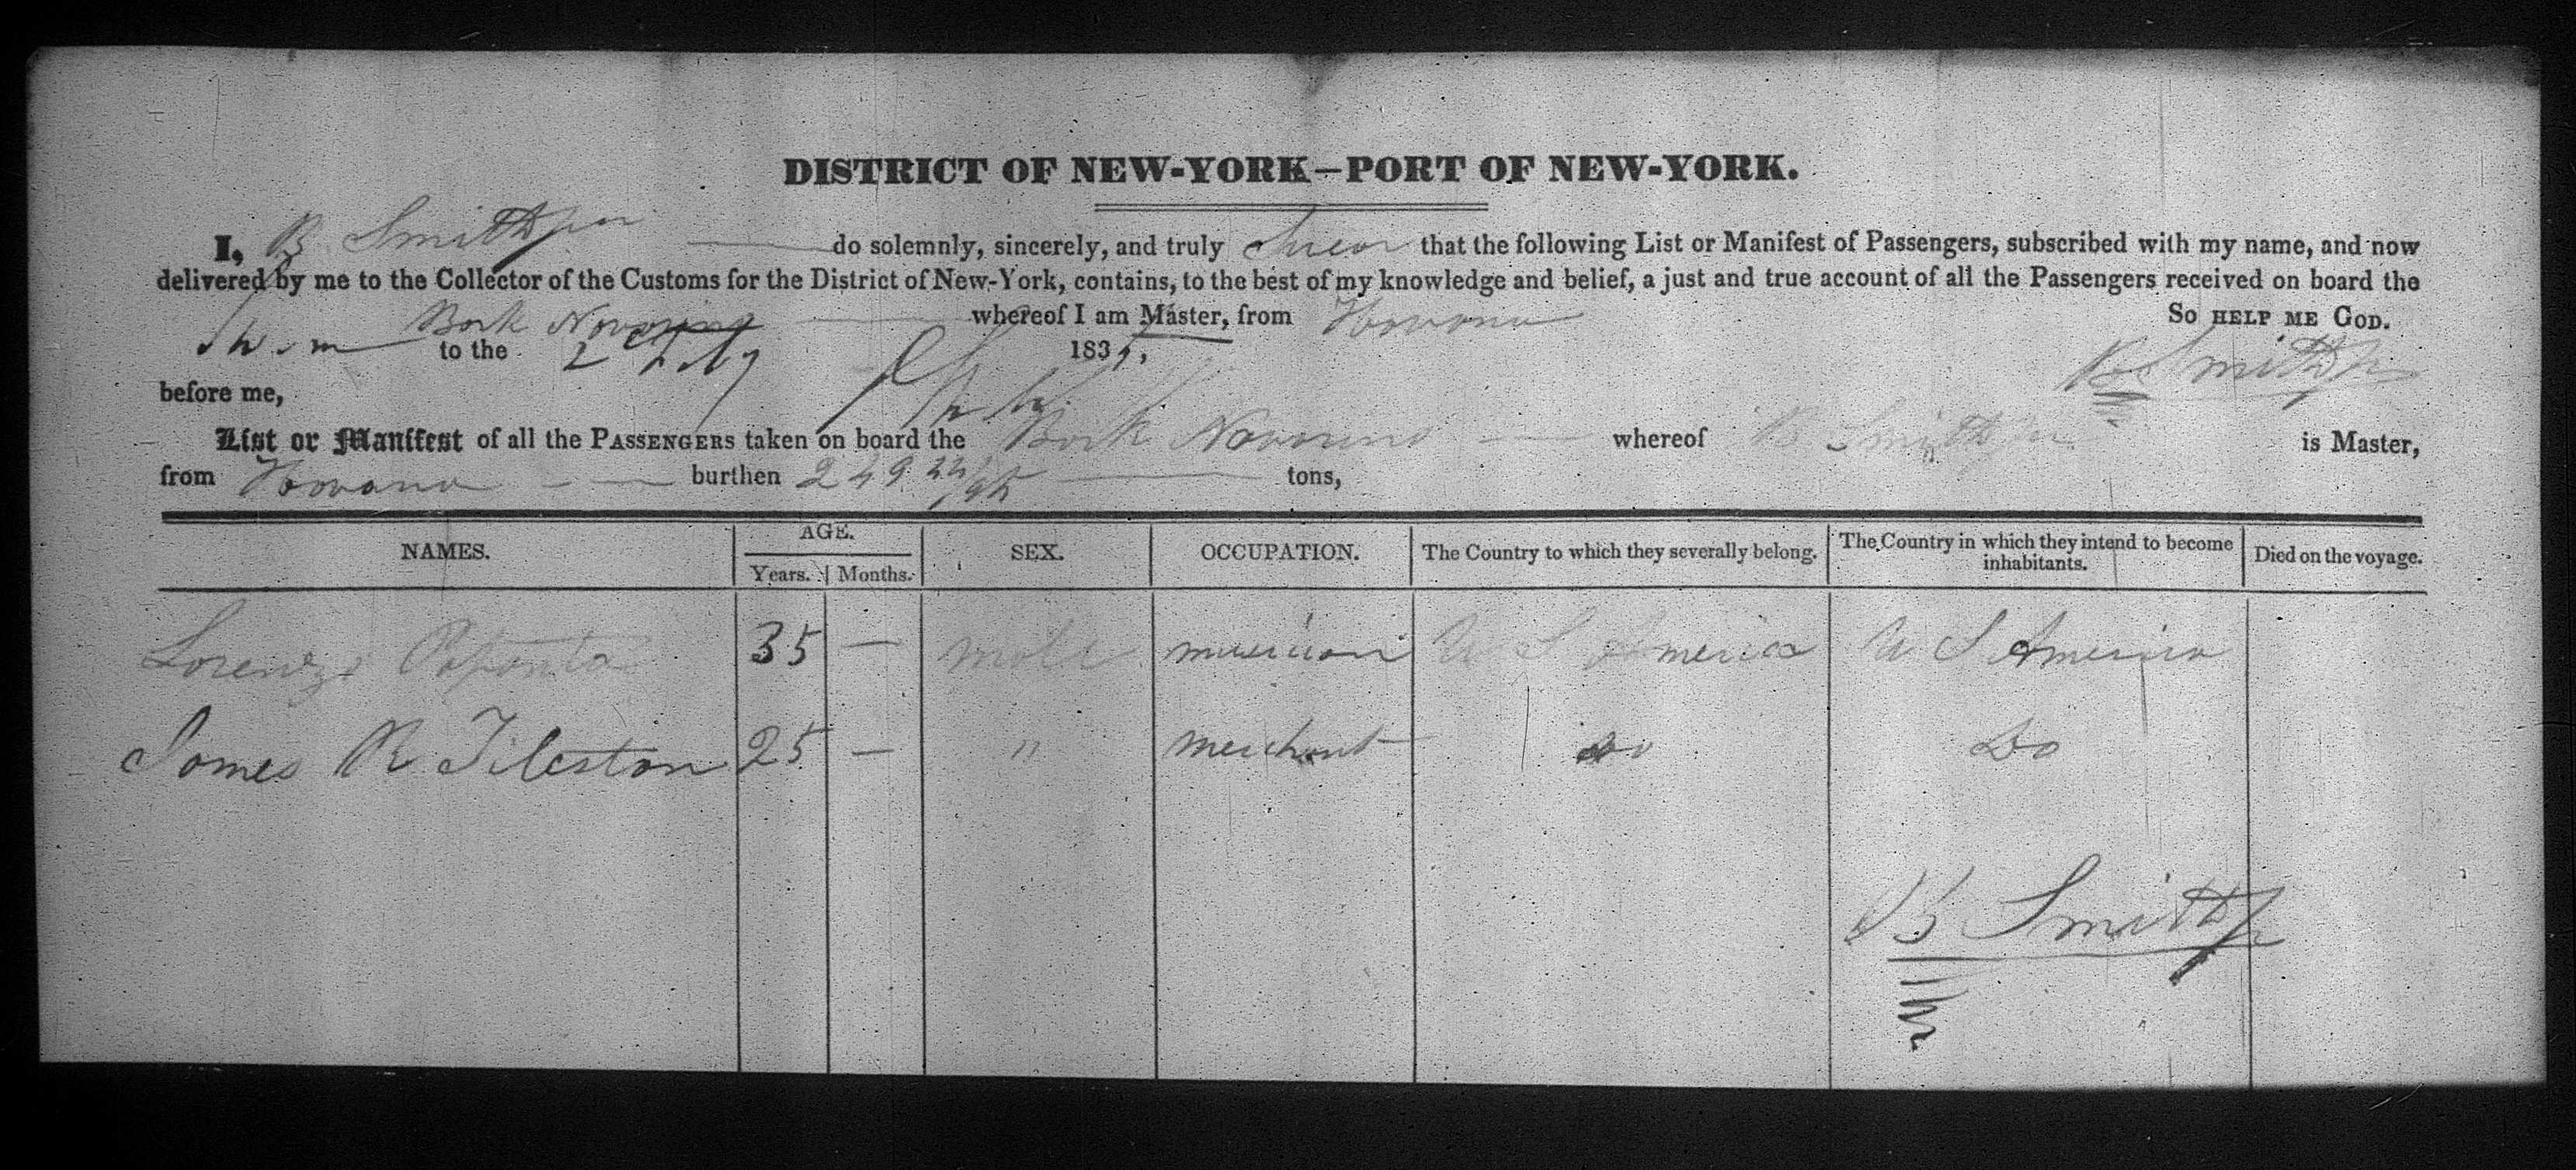 DISTRICT OF NEW-YORK—PORT OF NEW-YORK.
I, B Smith jr do solemnly, sincerely, and truly Swear that the following List or Manifest of Passengers, subscribed with my name, and now
delivered by me to the Collector of the Customs for the District of New-York, contains, to the best of my knowledge and belief, a just and true account of all the Passengers received on board the
Bark whereof I am Master, from Havana So HELP ME GOD.
to the 183
B Smith jr
before me,
List or Manifest of all the PASSENGERS taken on board the Bark whereof B Smith jr is Master,
from Havana burthen 249 tons,
NAMES. AGE. Years. Months. SEX. OCCUPATION. The Country to which they severally belong. The Country in which they intend to become inhabitants. Died on the voyage.
Lorenzo Papanta 35 — male musician U S America U S America
James R Tileston 25 — " merchant Do Do
B Smith jr